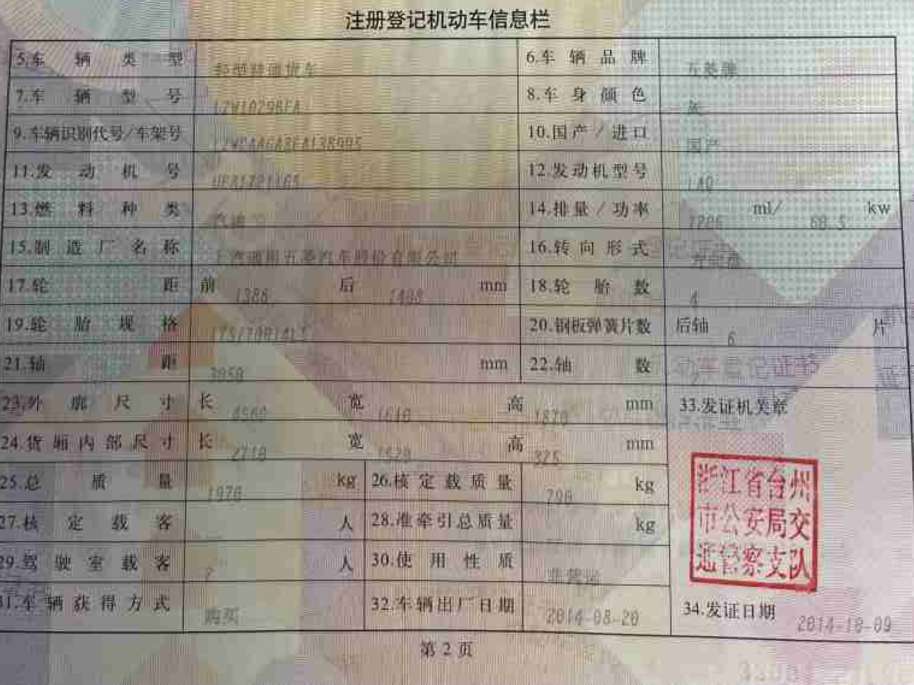 注册登记机动车信息栏
5.车辆类型 轻型普通货车 6.车辆品牌 五菱牌
7.车辆型号 LZW1029BFA 8.车身颜色 灰
9.车辆识别代号/车架号 10.国产/进口 国产
11.发动机号 12.发动机型号 LAQ
13.燃料种类 汽油 14.排量/功率 1206 ml/ 60.5 kw
15.制造厂名称 上汽通用五菱汽车股份有限公司 16.转向形式 方向盘
17.轮距 前 1386 后 1408 mm 18.轮胎数 4
19.轮胎规格 175/70R14LT 20.钢板弹簧片数 后轴 6 片
21.轴距 3050 mm 22.轴数 2
23.外廓尺寸 长 4560 宽 1610 高 1870 mm 33.发证机关章
24.货厢内部尺寸 长 2710 宽 1520 高 325 mm
25.总质量 1970 kg 26.核定载质量 790 kg
浙江省台州
市公安局交
通警察支队
27.核定载客 人 28.准牵引总质量 kg
29.驾驶室载客 2 人 30.使用性质 非营运
31.车辆获得方式 购买 32.车辆出厂日期 2014-08-20 34.发证日期 2014-10-09
第2页